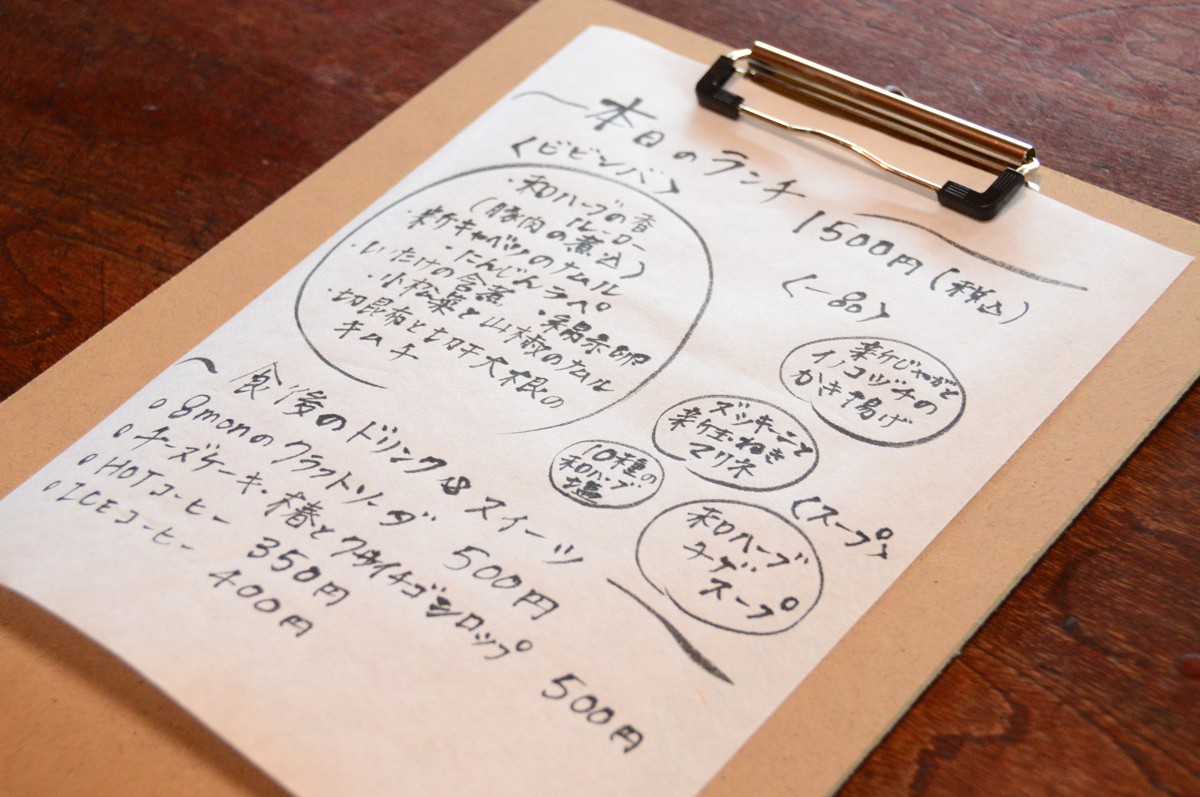 本日のランチ 1500円(税込)
〈ビビンバ〉
・和ハーブの香
ルーロー
(豚肉の煮込)
・新キャベツのナムル
・にんじんラペ
・しいたけの含煮 ・錦糸卵
・小松菜と山椒のナムル
・切昆布と切干大根の
キムチ
〈一品〉
新じゃがと
イノコヅチの
かき揚げ
ズッキーニと
新玉ねぎ
マリネ
10種の
和ハーブ
塩
〈スープ〉
和ハーブ
タデ
スープ
食後のドリンク&スイーツ
○8monのクラフトソーダ 500円
○チーズケーキ・椿とクサイチゴシロップ 500円
○HOTコーヒー 350円
○ICEコーヒー 400円